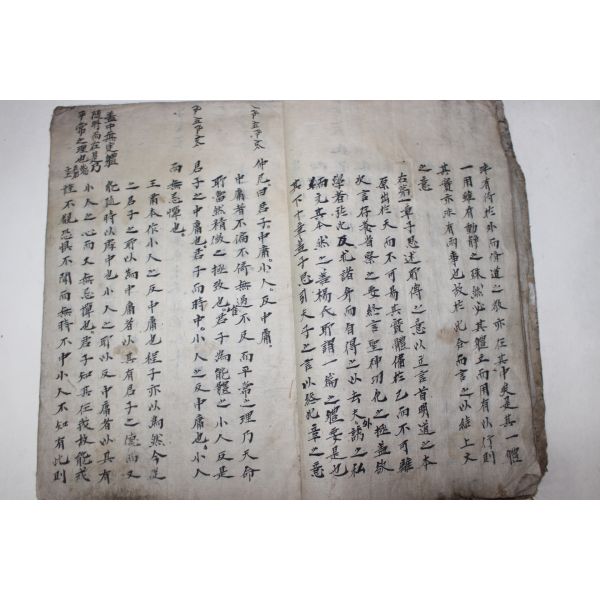 未有待於外而脩道之教亦在其中矣是其一體
一用雖有動靜之殊然必其體立而用有以行則
其實亦非有兩事也故於此合而言之以結上文
之意
右第一章子思述所傳之意以立言首明道之本
原出於天而不可易其實體備於己而不可離
次言存養省察之要終言聖神功化之極蓋欲
學者於此反求諸身而自得之以去夫外誘之私
而充其本然之善楊氏所謂一篇之體要是也
其下十章蓋子思引夫子之言以終此章之意
仲尼曰君子中庸小人反中庸
中庸者不偏不倚無過不及而平常之理乃天命
所當然精微之極致也唯君子為能體之小人反是
君子之中庸也君子而時中小人之反中庸也小人
而無忌憚也
王肅本作小人之反中庸也程子亦以為然今從
之君子之所以為中庸者以其有君子之德而又
能隨時以處中也小人之所以反中庸者以其有
小人之心而又無忌憚也
蓋中無定體
隨時而在是乃
平常之理也
君子知其在我故能戒
謹不睹恐懼不聞而無時不中小人不知有此則